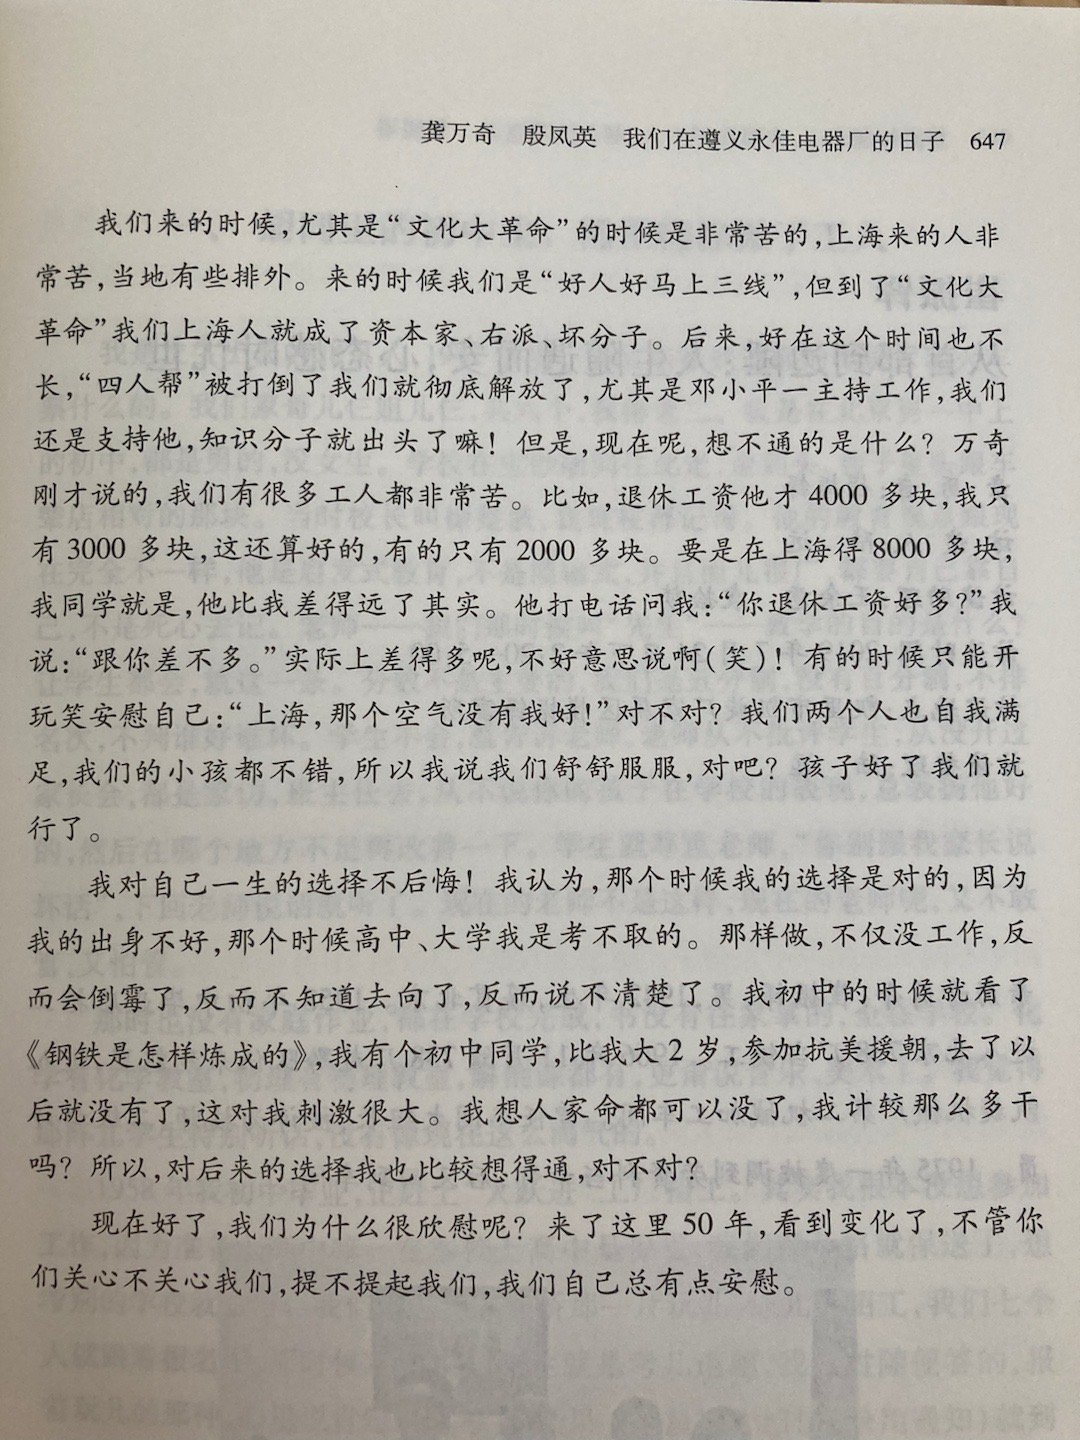 龚万奇　殷凤英　我们在遵义永佳电器厂的日子　647
我们来的时候,尤其是“文化大革命”的时候是非常苦的,上海来的人非
常苦,当地有些排外。来的时候我们是“好人好马上三线”,但到了“文化大
革命”我们上海人就成了资本家、右派、坏分子。后来,好在这个时间也不
长,“四人帮”被打倒了我们就彻底解放了,尤其是邓小平一主持工作,我们
还是支持他,知识分子就出头了嘛！但是,现在呢,想不通的是什么？万奇
刚才说的,我们有很多工人都非常苦。比如,退休工资他才 4000 多块,我只
有 3000 多块,这还算好的,有的只有 2000 多块。要是在上海得 8000 多块,
我同学就是,他比我差得远了其实。他打电话问我:“你退休工资好多?”我
说:“跟你差不多。”实际上差得多呢,不好意思说啊(笑)！有的时候只能开
玩笑安慰自己:“上海,那个空气没有我好!”对不对？我们两个人也自我满
足,我们的小孩都不错,所以我说我们舒舒服服,对吧？孩子好了我们就
行了。
我对自己一生的选择不后悔！我认为,那个时候我的选择是对的,因为
我的出身不好,那个时候高中、大学我是考不取的。那样做,不仅没工作,反
而会倒霉了,反而不知道去向了,反而说不清楚了。我初中的时候就看了
《钢铁是怎样炼成的》,我有个初中同学,比我大 2 岁,参加抗美援朝,去了以
后就没有了,这对我刺激很大。我想人家命都可以没了,我计较那么多干
吗？所以,对后来的选择我也比较想得通,对不对？
现在好了,我们为什么很欣慰呢？来了这里 50 年,看到变化了,不管你
们关心不关心我们,提不提起我们,我们自己总有点安慰。